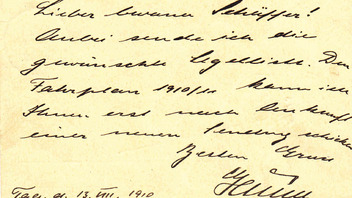 Lieber bwana Schäffer!
Anbei sende ich die
gewünschte Segelliste. Den
Fahrplan 1910/11 kann ich
Ihnen erst nach Ankunft
einer neuen Sendung schicken
Besten Gruss
Tanga 13. VIII. 1910